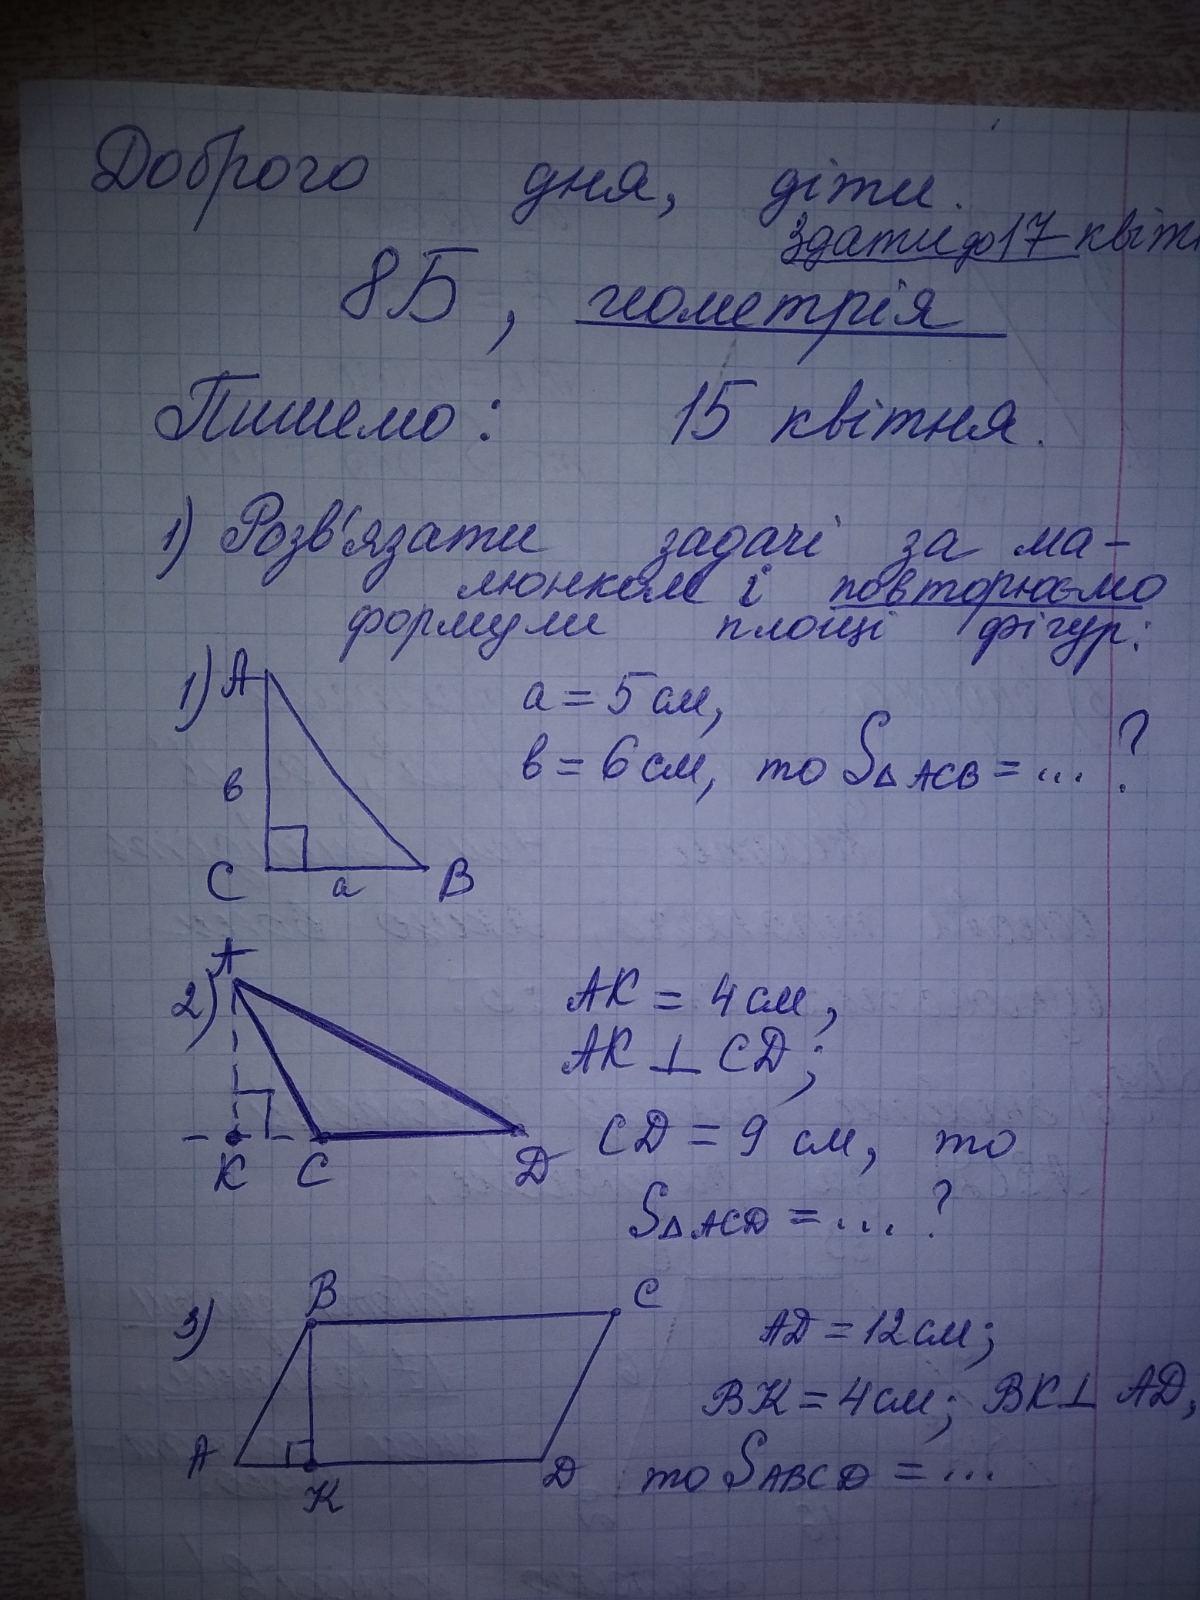 Доброго дня, діти.
Здати до 17 квітн
8Б, геометрія
Пишемо: 15 квітня.
1) Розв'язати задачі за ма-
люнком і повторюємо
формули площі фігур:
1) A
a = 5 см,
в = 6 см, то S△ACB = ... ?
в
C a B
2) A
AK = 4 см,
AK ⊥ CD;
CD = 9 см, то
K C D
S△ACD = ... ?
3) B C
AD = 12 см;
BK = 4 см; BK ⊥ AD,
A K D
то SABCD = ...